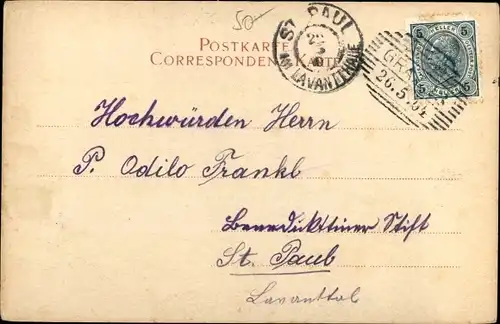 50-
POSTKARTE
CORRESPONDENZ-KARTE
ST. PAUL
IM LAVANTTHALE
5 HELLER 5
GRAZ
26.5.04
5 HELLER 5
Hochwürden Herrn
P. Odilo Frankl
Benediktiner Stift
St. Paul
Lavanttal